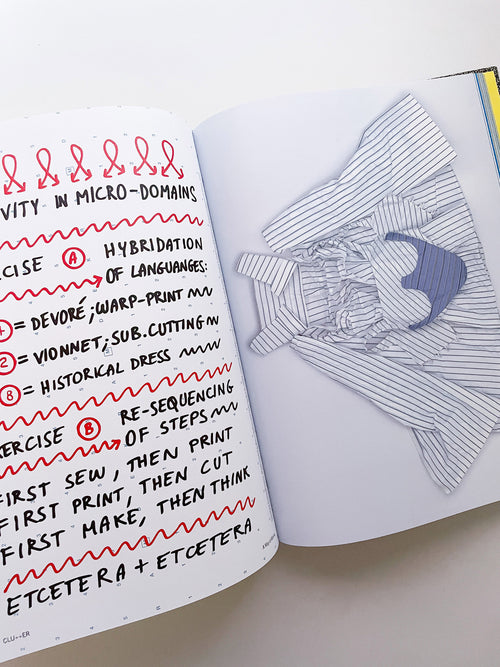 VITY IN MICRO-DOMAINS
CISE A HYBRIDATION
OF LANGUANGES:
= DEVORÉ; WARP-PRINT
2 = VIONNET; SUB.CUTTING
= HISTORICAL DRESS
ERCISE B RE-SEQUENCING
OF STEPS
FIRST SEW, THEN PRINT
FIRST PRINT, THEN CUT
FIRST MAKE, THEN THINK
ETCETERA + ETCETERA